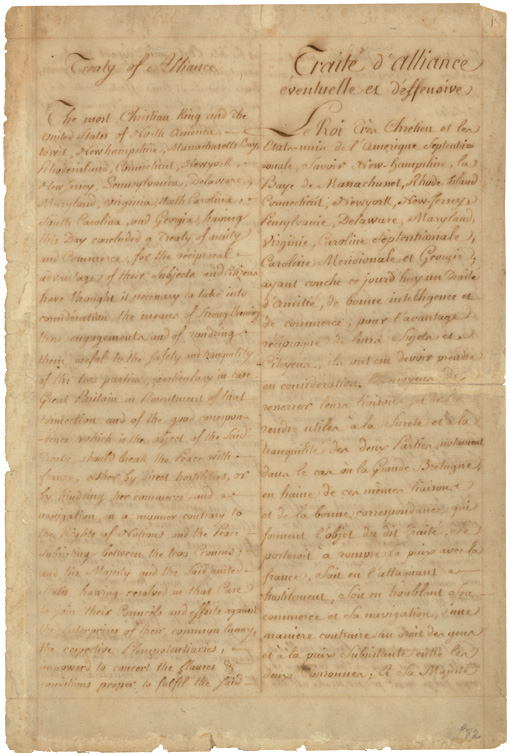 Treaty of Alliance
The most Christian King and the
United States of North America,
to wit, Newhampshire, Massachusetts Bay,
Rhodeisland, Connecticut, Newyork,
New Jersey, Pennsylvania, Delaware,
Maryland, Virginia, North Carolina,
South Carolina, and Georgia having
this Day concluded a Treaty of amity
and Commerce, for the reciprocal
advantage of their Subjects and Citizens
have thought it necessary to take into
consideration the means of Strengthening
those engagements and of rendering
them useful to the Safety and tranquility
of the two parties, particularly in case
Great Britain in Resentment of that
connection and of the good correspon-
dence which is the object of the Said
Treaty, should break the Peace with
france, either by direct hostilities, or
by hindring her commerce and
navigation, in a manner contrary to
the Rights of Nations, and the Peace
subsisting between the two Crowns;
and his Majesty and the Said united
States having resolved in that Case
to join their Councils and efforts against
the Enterprises of their common Enemy,
the respective Plenipotentiaries,
impowered to concert the Clauses &
conditions proper to fulfil the said
Traité d'alliance
eventuelle et deffensive
Le Roi très Chrétien et les
Etats-unis de l'Amerique Septentri-
onale, Savoir New-hampshire, la
Baye de Massachusset, Rhode Island
Connecticut, Newyork, New-Jersey,
Pensylvanie, Delaware, Maryland,
Virginie, Caroline Septentrionale,
Caroline Meridionale et Georgie,
ayant conclu ce jourd'huy un Traité
d'Amitié, de bonne intelligence et
de commerce, pour l'avantage
réciproque de leurs Sujets et
Citoyens, ils ont cru devoir prendre
en consideration les moyens de
renserrer leurs liaisons, et de les
rendre utiles à la Sureté et à la
tranquilité des deux Parties, notament
dans le cas où la Grande Bretagne,
en haine de ces mêmes liaisons
et de la bonne correspondance qui
forment l'objet du dit Traité, se
porteroit à rompre la paix avec la
france, Soit en l'attaquant
hostilement, Soit en troublant Son
commerce et Sa navigation, d'une
maniere contraire au droit des gens
et à la paix Subsistante entre les
deux Couronnes; Et Sa Majesté